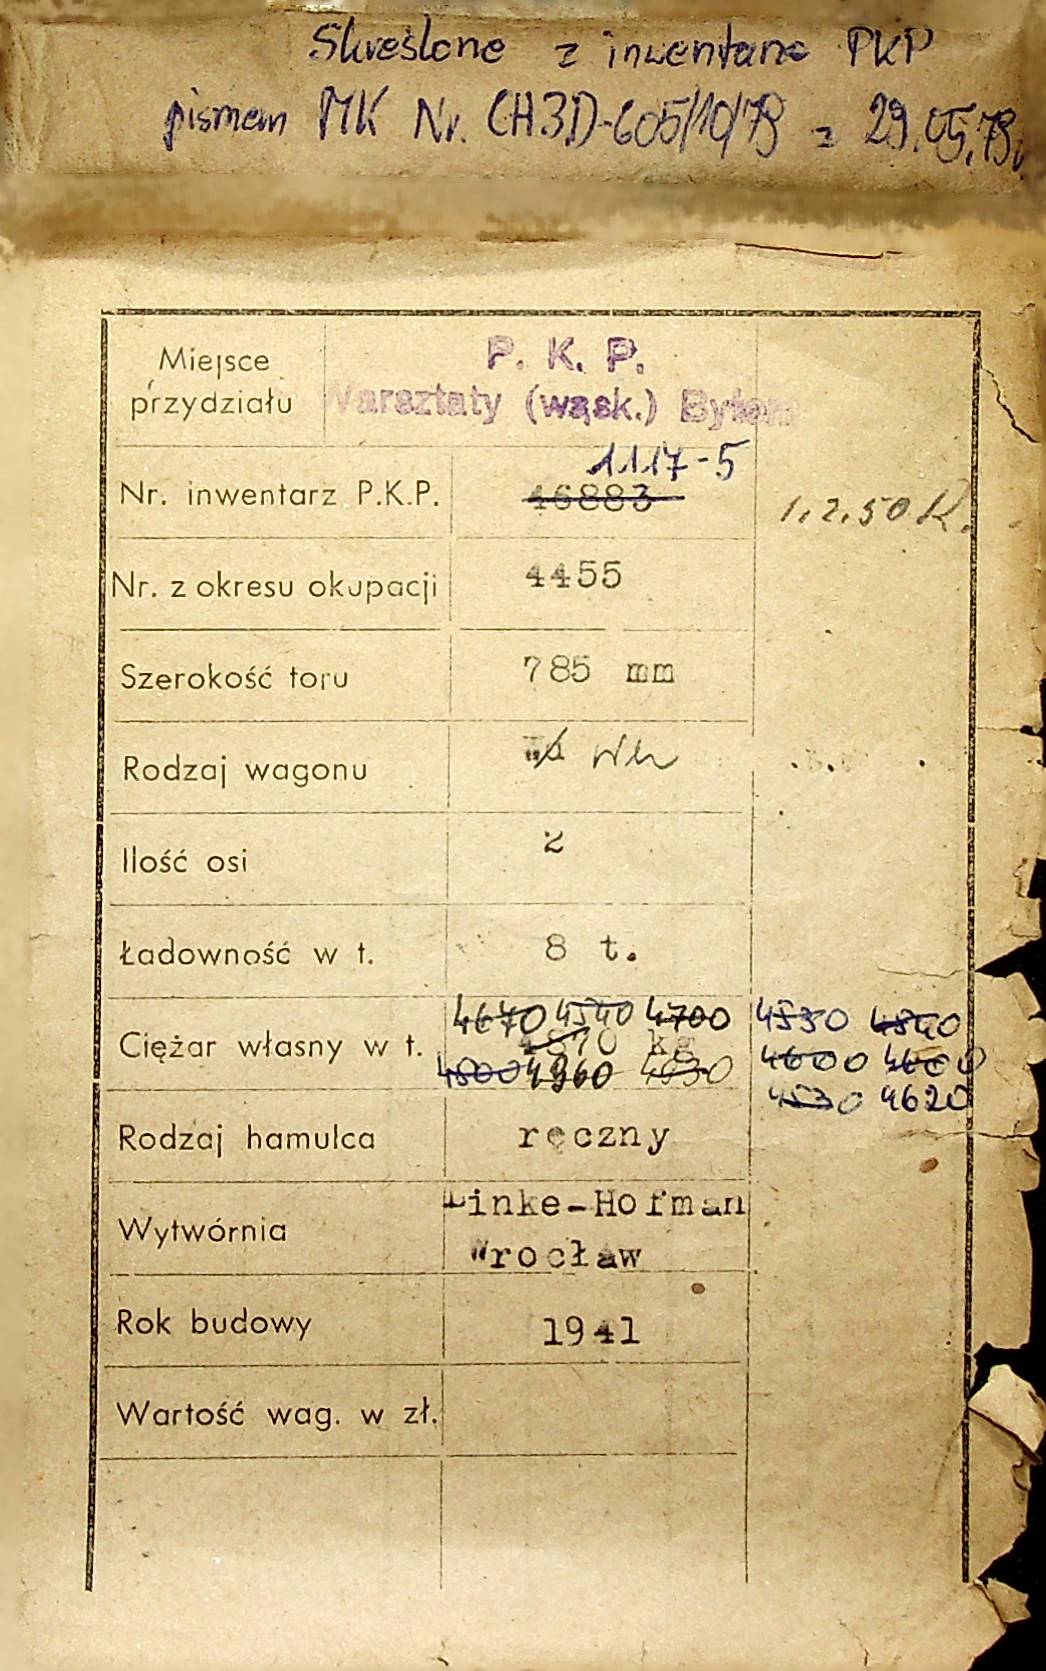 Skreślone z inwentarza PKP
pismem MK Nr. CH3D-605/10/79 z 29.05.79r.
Miejsce przydziału
P. K. P.
Warsztaty (wąsk.) Bytom
Nr. inwentarz P.K.P.
1117-5
46883
1.2.50 R.
Nr. z okresu okupacji 4455
Szerokość toru 785 mm
Rodzaj wagonu
Ilość osi 2
Ładowność w t. 8 t.
4670 4540 4700 4550 4840
Ciężar własny w t. 4870 kg 4600 4600
4800 4960 4530 4620
Rodzaj hamulca ręczny
Wytwórnia
Linke-Hofman
Wrocław
Rok budowy 1941
Wartość wag. w zł.